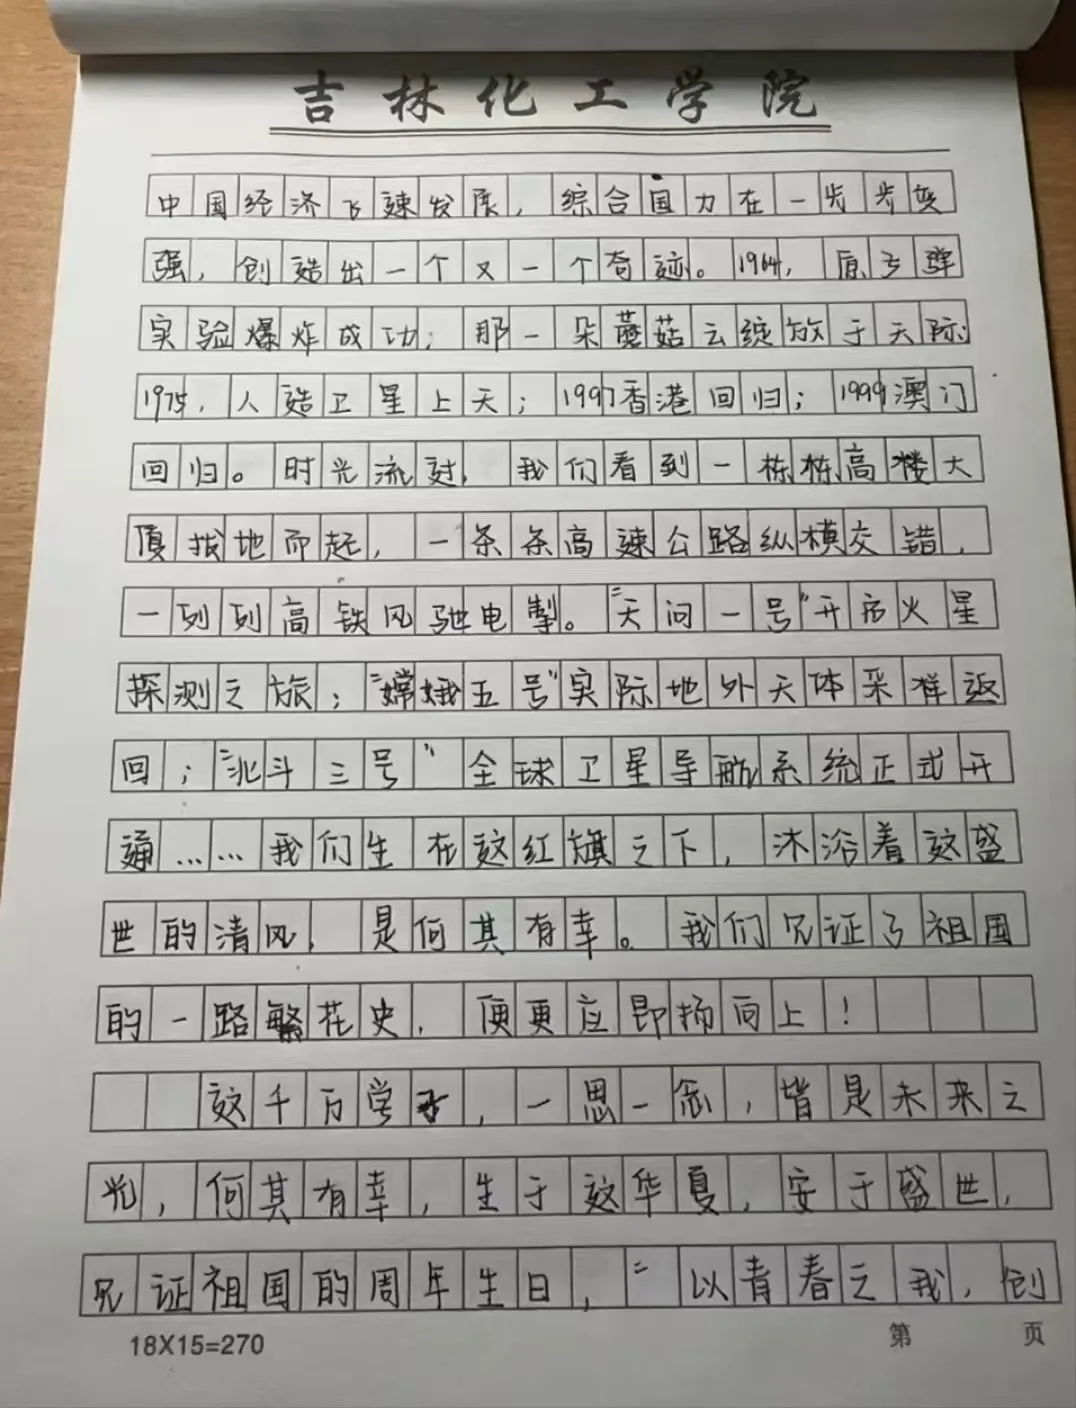 吉林化工学院
中国经济飞速发展，综合国力在一步步变
强，创造出一个又一个奇迹。1964，原子弹
实验爆炸成功；那一朵蘑菇云绽放于天际
1975，人造卫星上天；1997香港回归；1999澳门
回归。时光流过，我们看到一栋栋高楼大
厦拔地而起，一条条高速公路纵横交错，
一列列高铁风驰电掣。“天问一号”开启火星
探测之旅；“嫦娥五号”实际地外天体采样返
回；“北斗三号”全球卫星导航系统正式开
通……我们生在这红旗之下，沐浴着这盛
世的清风，是何其有幸。我们见证了祖国
的一路繁花史，便更应昂扬向上！
这千万学子，一思一念，皆是未来之
光，何其有幸，生于这华夏，安于盛世，
见证祖国的周年生日，“以青春之我，创
18X15=270
第 页